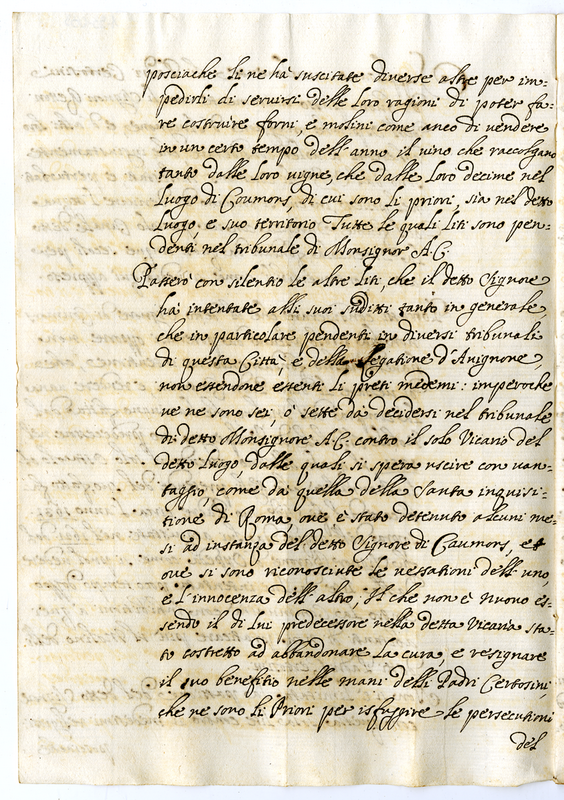 posciache li ne hà suscitate diverse altre per im=
pedirli di servirsi delle loro ragioni di poter fa=
re costruire forni, e molini come anco di vendere
in un certo tempo dell'anno il vino che raccolgano
tanto dalle loro vigne, che dalle loro decime nel
luogo di Caumons, di cui sono li priori, sia nel detto
luogo, e suo territorio Tutte le quali liti sono pen=
denti nel tribunale di Monsignor A.C.
Passerò con silentio le altre liti, che il detto Signore
hà intentate alli suoi sudditi tanto in generale,
che in particolare pendenti in diversi tribunali
di questa Città, e della Legatione d'Avignone,
non essendone essenti li preti medemi: imperoche
ve ne sono sei, ò sette da decidersi nel tribunale
di detto Monsignore A.C. contro il solo Vicario del
detto luogo, dalle quali si spera uscire con van=
taggio, come da quella della Santa inquisi=
tione di Roma, ove è stato detenuto alcuni me=
si ad instanza del detto Signore di Caumons, et
ove si sono riconosciute le vessationi dell'uno,
e l'innocenza dell'altro; Il che non è nuovo es=
sendo il di lui predecessore nella detta Vicaria sta=
to costretto ad abbandonare la cura, e resignare
il suo benefitio nelle mani delli Padri Certosini
che ne sono li Priori per isfuggire le persecutioni
del